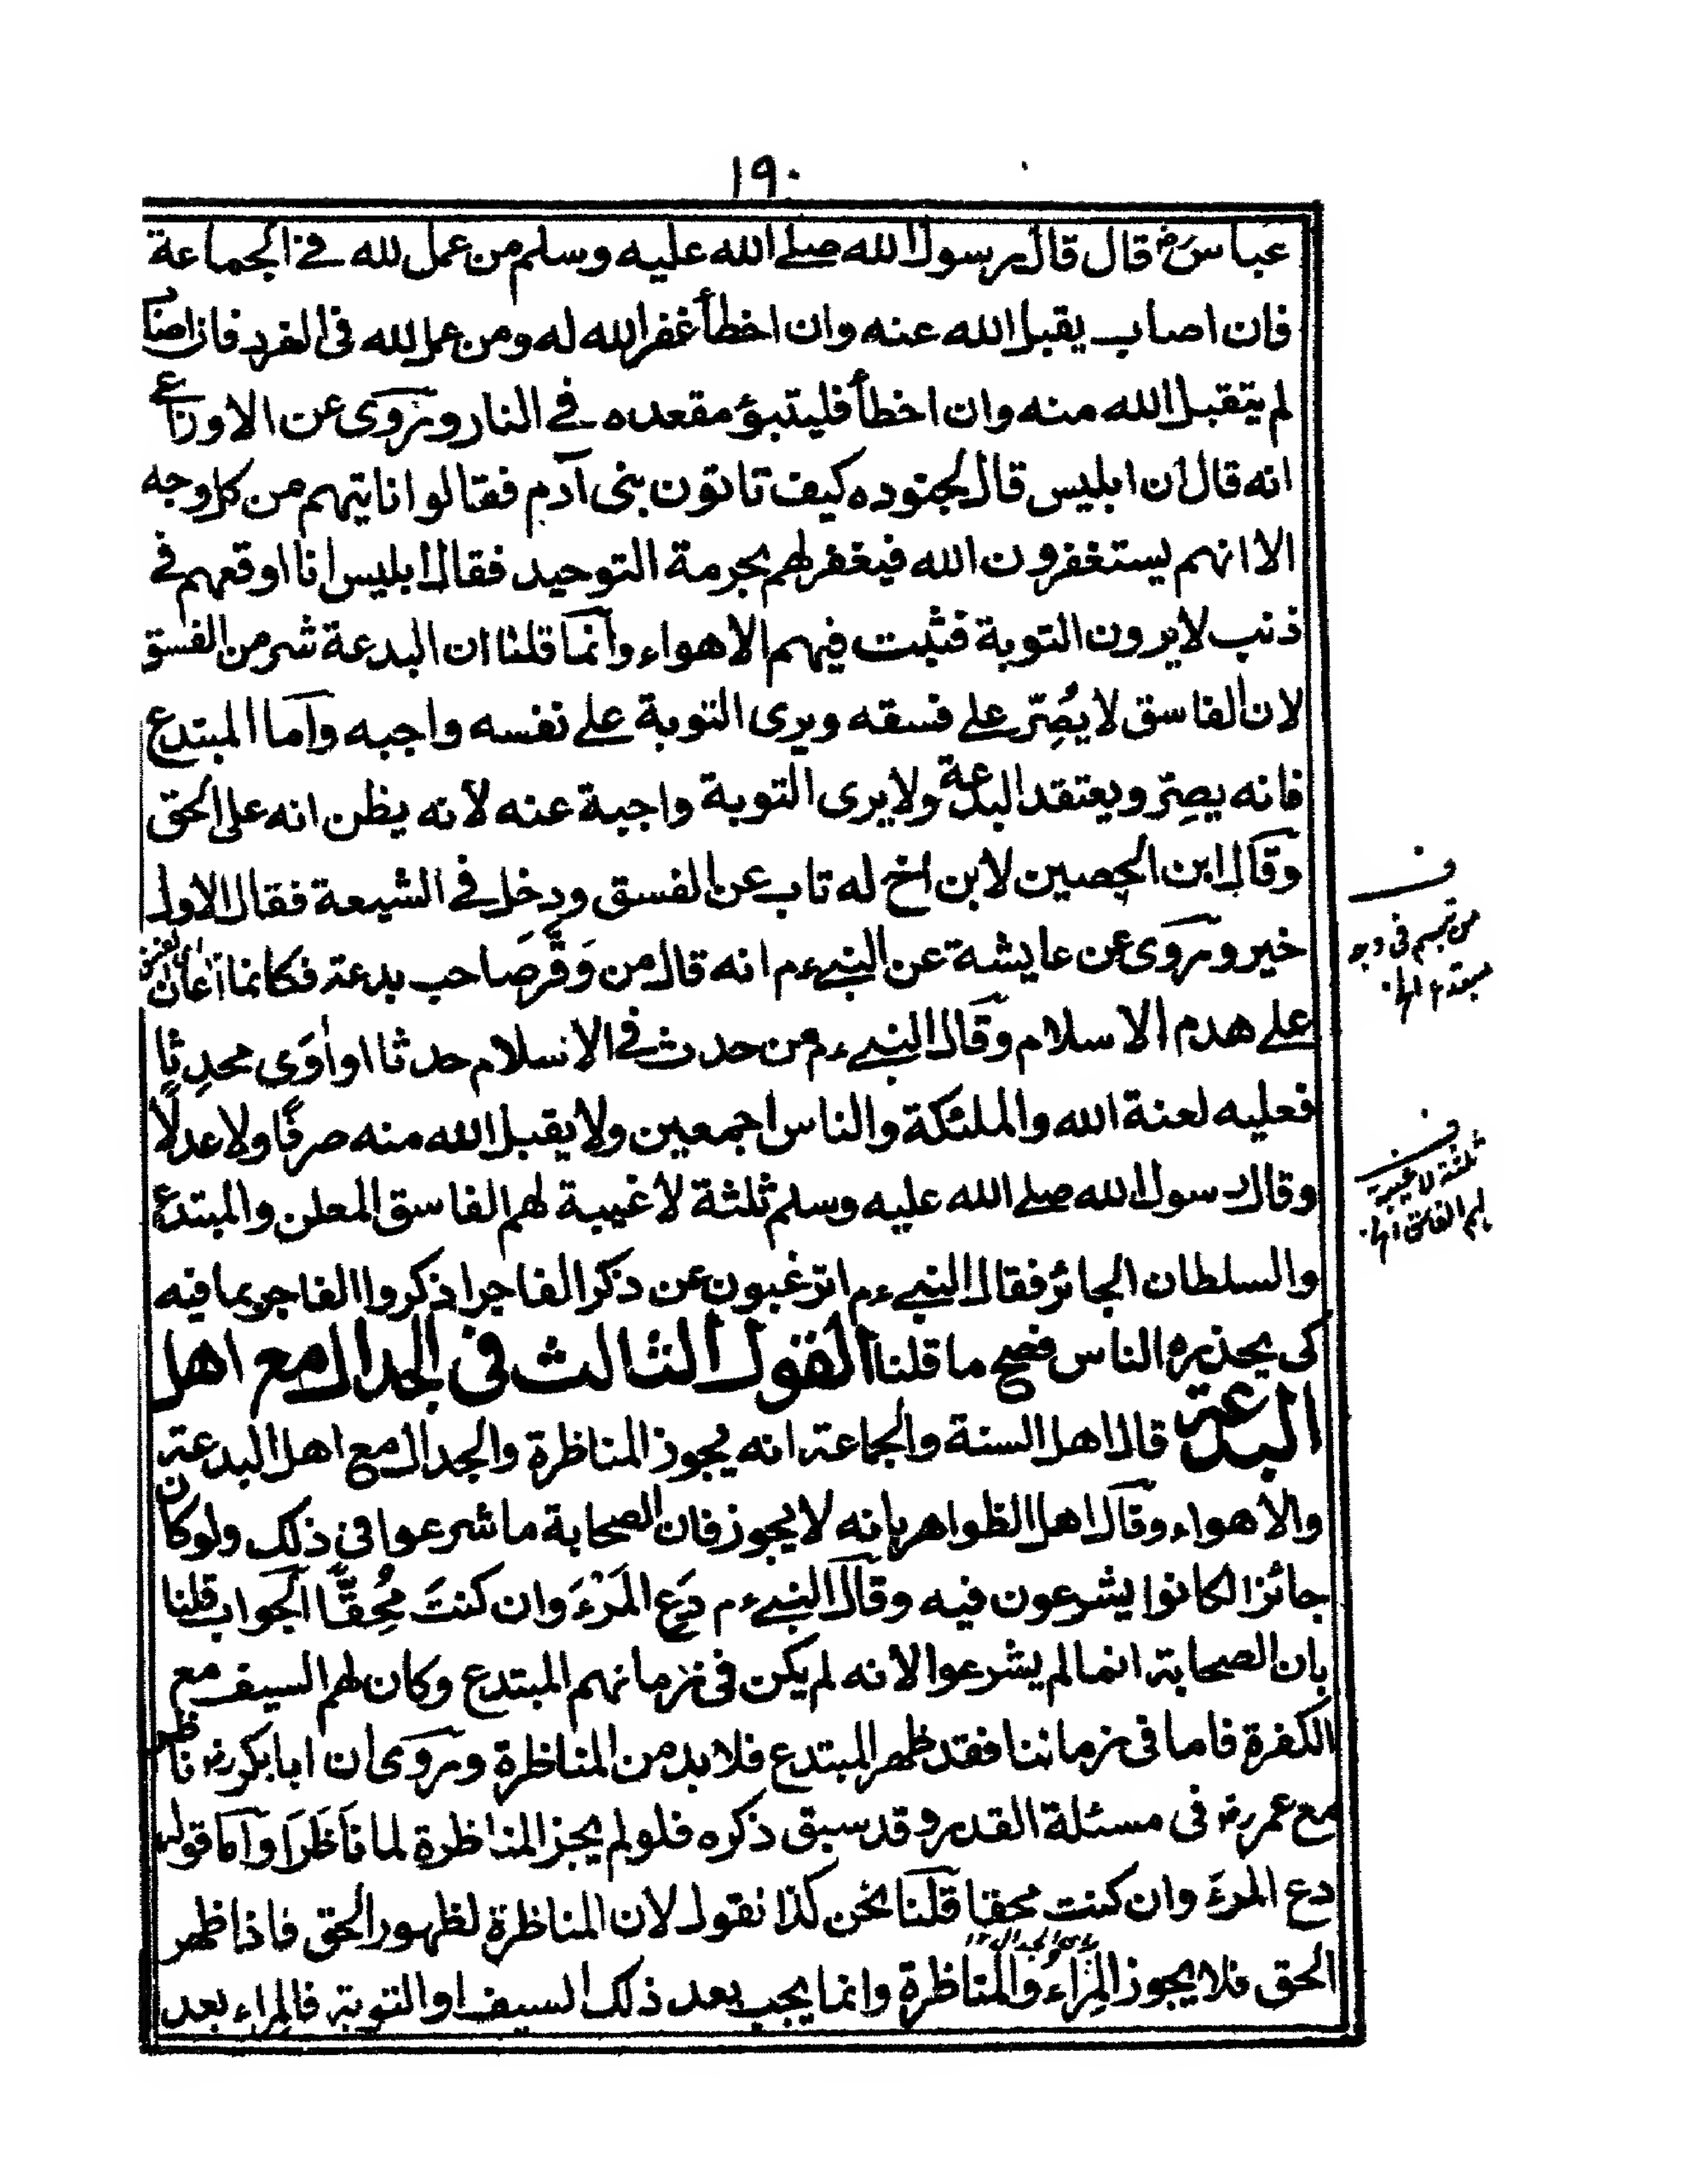 ١٩٠
عباس رض قال قال رسول الله صلے الله عليه وسلم من عمل لله فے الجماعة
فان اصاب يقبل الله عنه وان اخطأ غفر الله له ومن عمل لله فى الفرد فان اصاب
لم يتقبل الله منه وان اخطأ فليتبؤ مقعده فے النار وروى عن الاوزاعے
انه قال ان ابليس قال لجنوده كيف تاتون بنى آدم فقالوا ناتيهم من كل وجه
الا انهم يستغفرون الله فيغفر لهم بحرمة التوحيد فقال ابليس انا اوقعهم فے
ذنب لا يرون التوبة فثبت فيهم الاهواء وانما قلنا ان البدعة شر من الفسق
لان الفاسق لا يُصِرّ علے فسقه ويرى التوبة علے نفسه واجبه واما المبتدع
فانه يصِرّ ويعتقد البدعة ولا يرى التوبة واجبة عنه لانه يظن انه على الحق
وقال ابن الحصين لابن اخ له تاب عن الفسق ودخل فے الشيعة فقال الاول
خير وروى عن عايشة عن النبے ءم انه قال من وَقَّرَ صاحب بدعة فكانما اعان
علے هدم الاسلام وقال النبے ءم من حدث فے الاسلام حدثا او اٰوَى محدِثًا
فعليه لعنة الله والملئكة والناس اجمعين ولا يقبل الله منه صرفًا ولا عدلًا
وقال رسول الله صلے الله عليه وسلم ثلثة لا غيبة لهم الفاسق المعلن والمبتدع
والسلطان الجائز فقال النبے ءم اترغبون عن ذكر الفاجر اذكروا الفاجر بما فيه
كى يحذره الناس فصح ما قلنا القول الثالث فى الجدال مع اهل
البدعة قال اهل السنة والجماعة انه يجوز المناظرة والجدال مع اهل البدعة
والاهواء وقال اهل الظواهر بانه لا يجوز فان الصحابة ما شرعوا فى ذلك ولو كان
جائزا لكانوا يشرعون فيه وقال النبے ءم دَعِ المَرْءَ وان كنتَ مُحِقًّا الجواب قلنا
بان الصحابة انما لم يشرعوا لانه لم يكن فى زمانهم المبتدع وكان لهم السيف مع
الكفرة فاما فى زماننا فقد ظهر المبتدع فلا بد من المناظرة وروى ان ابا بكر رض ناظر
مع عمر رض فى مسئلة القدر وقد سبق ذكره فلو لم يجز المناظرة لما نَاظَرَا واما قوله
دع المرءَ وان كنت محقا قلنا نحن كذا نقول لان المناظرة لظهور الحق فاذا ظهر
الحق فلا يجوز المِراءُ والمناظرة وانما يجب بعد ذلك السيف او التوبة فالمِراء بعد
ف
من تبسم فى وجه
ف
ثلثة لا غيبة
لهم الفاسق